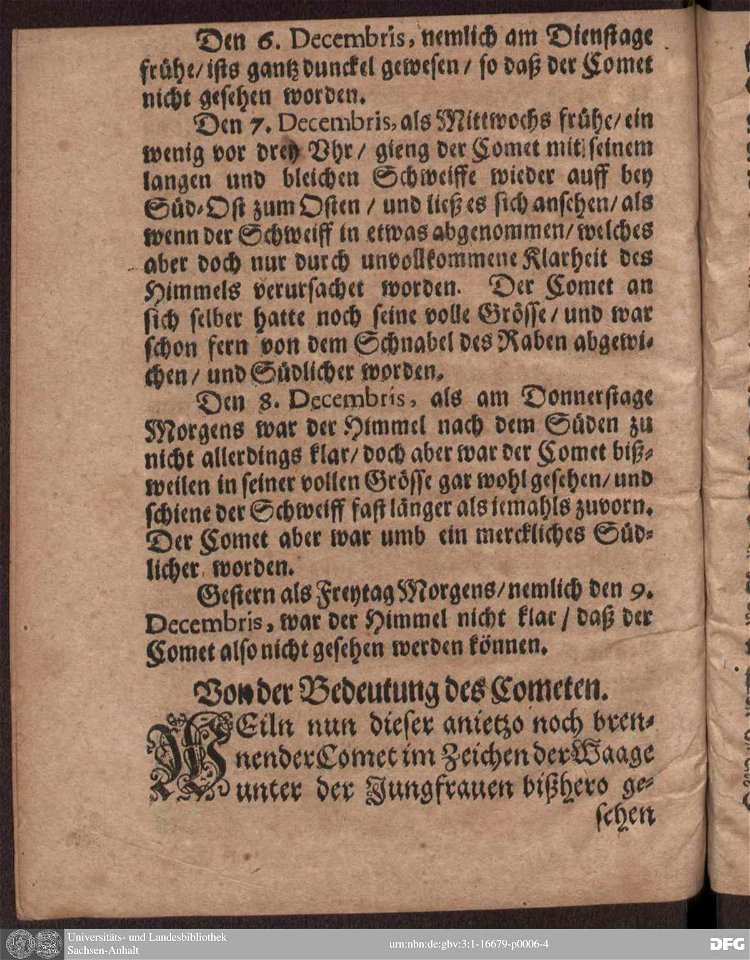 Den 6. Decembris, nemlich am Dienstage
frühe/ ists gantz dunckel gewesen/ so daß der Comet
nicht gesehen worden.
Den 7. Decembris, als Mittwochs frühe/ ein
wenig vor drey Vhr/ gieng der Comet mit seinem
langen und bleichen Schweiffe wieder auff bey
Süd-Ost zum Osten/ und ließ es sich ansehen/ als
wenn der Schweiff in etwas abgenommen/ welches
aber doch nur durch unvollkommene Klarheit des
Himmels verursachet worden. Der Comet an
sich selber hatte noch seine volle Grösse/ und war
schon fern von dem Schnabel des Raben abgewi-
chen/ und Südlicher worden.
Den 8. Decembris, als am Donnerstage
Morgens war der Himmel nach dem Süden zu
nicht allerdings klar/ doch aber war der Comet biß-
weilen in seiner vollen Grösse gar wohl gesehen/ und
schiene der Schweiff fast länger als iemahls zuvorn.
Der Comet aber war umb ein merckliches Süd-
licher worden.
Gestern als Freytag Morgens/ nemlich den 9.
Decembris, war der Himmel nicht klar/ daß der
Comet also nicht gesehen werden können.
Von der Bedeutung des Cometen.
WEiln nun dieser anietzo noch bren-
nender Comet im Zeichen der Waage
unter der Jungfrauen bißhero ge-
sehen
Universitäts- und Landesbibliothek
Sachsen-Anhalt
urn:nbn:de:gbv:3:1-16679-p0006-4
DFG